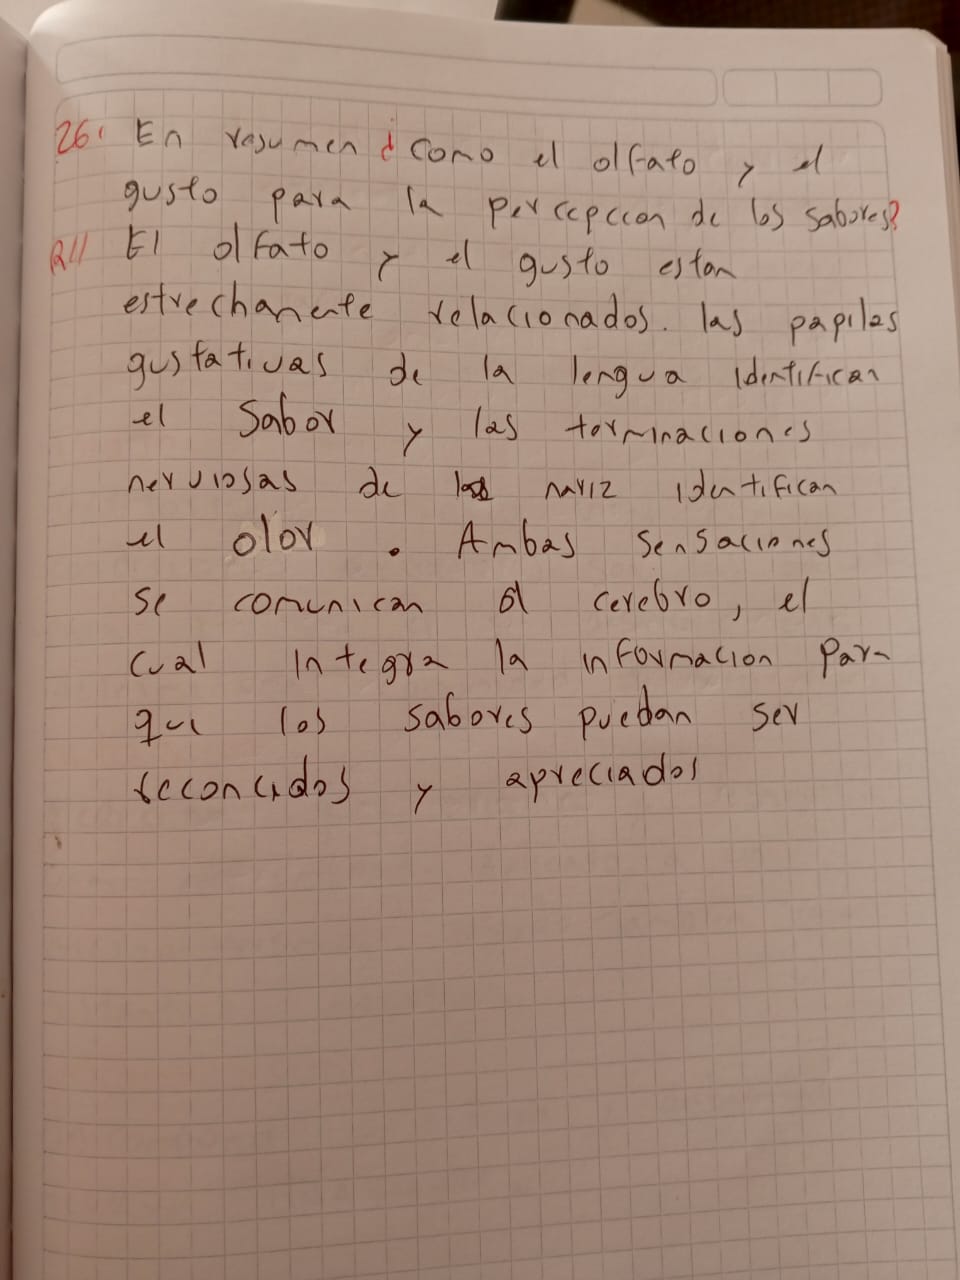 26. En resumen ¿Como el olfato y el
gusto para la percepcion de los sabores?
R// El olfato y el gusto estan
estrechamente relacionados. las papilas
gustativas de la lengua identifican
el sabor y las terminaciones
nerviosas de la nariz identifican
el olor . Ambas sensaciones
se comunican al cerebro, el
cual integra la informacion para
que los sabores puedan ser
reconcidos y apreciados